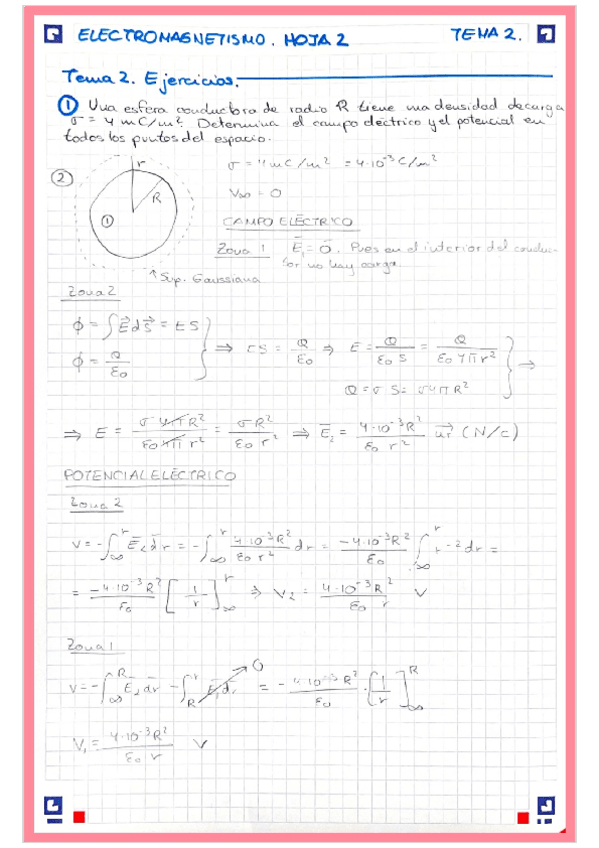 ELECTROMAGNETISMO. HOJA 2 TEMA 2.
Tema 2. Ejercicios.
① Una esfera conductora de radio R tiene una densidad de carga
σ = 4 mC/m². Determina el campo eléctrico y el potencial en
todos los puntos del espacio.
r
② R ①
σ = 4 mC/m² = 4·10⁻³ C/m²
V∞ = 0
CAMPO ELÉCTRICO
Zona 1 E₁ = 0. Pues en el interior del conduc-
tor no hay carga.
Sup. Gaussiana
Zona 2
ϕ = ∫ E dS = ES
ϕ = Q/ε₀
⇒ ES = Q/ε₀ ⇒ E = Q/(ε₀ S) = Q/(ε₀ 4πr²)
Q = σ S = σ4πR²
⇒ E = σ 4πR²/(ε₀ 4π r²) = σR²/(ε₀ r²) ⇒ E₂ = 4·10⁻³R²/(ε₀ r²) ur (N/C)
POTENCIAL ELÉCTRICO
Zona 2
V = -∫∞^r E₂ dr = -∫∞^r 4·10⁻³R²/(ε₀ r²) dr = -4·10⁻³R²/ε₀ ∫∞^r r⁻² dr =
= -4·10⁻³R²/ε₀ [1/r]∞^r ⇒ V₂ = 4·10⁻³R²/(ε₀ r) V
Zona 1
V = -∫∞^R E₂ dr - ∫R^r E₁ dr 0 = -4·10⁻³R²/ε₀ · [1/r]∞^R
V₁ = 4·10⁻³R²/(ε₀ r) V